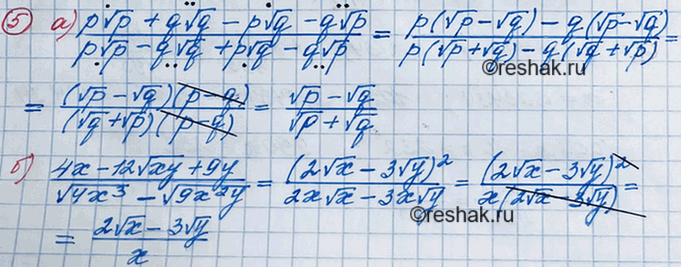 5 а) (p√p + q√q - p√q - q√p)/(p√p - q√q + p√q - q√p) = (p(√p - √q) - q(√p - √q))/(p(√p + √q) - q(√q + √p)) =
©reshak.ru
= ((√p - √q)(p - q))/((√q + √p)(p - q)) = (√p - √q)/(√p + √q)
б) (4x - 12√xy + 9y)/(√4x³ - √9x²y) = (2√x - 3√y)²/(2x√x - 3x√y) = (2√x - 3√y)²/(x(2√x - 3√y)) =
©reshak.ru
= (2√x - 3√y)/x